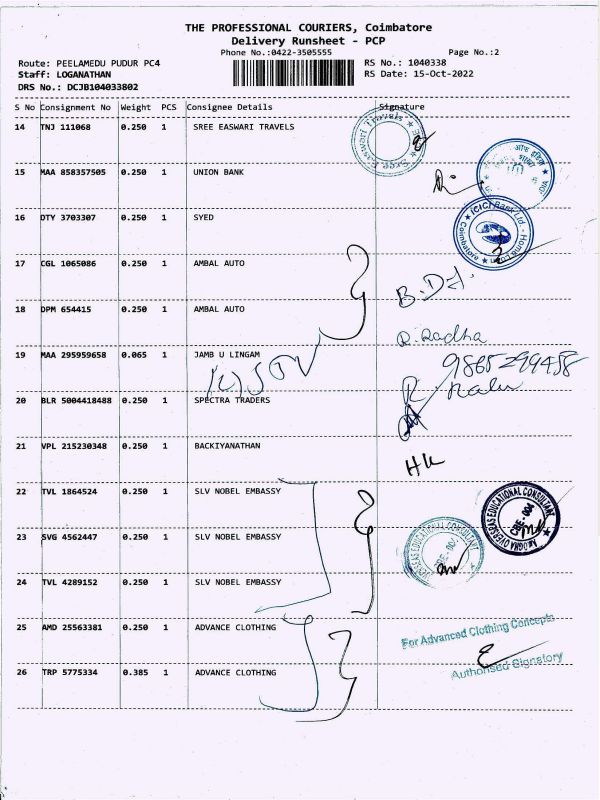 THE PROFESSIONAL COURIERS, Coimbatore
Delivery Runsheet - PCP
Phone No.:0422-3505555 Page No.:2
Route: PEELAMEDU PUDUR PC4 RS No.: 1040338
Staff: LOGANATHAN RS Date: 15-Oct-2022
DRS No.: DCJB104033802
S No Consignment No Weight PCS Consignee Details Signature
14 TNJ 111068 0.250 1 SREE EASWARI TRAVELS
15 MAA 858357505 0.250 1 UNION BANK
16 DTY 3703307 0.250 1 SYED
ICICI Bank Ltd - Home Loan
Coimbatore
17 CGL 1065086 0.250 1 AMBAL AUTO
18 DPM 654415 0.250 1 AMBAL AUTO
R. Radha
19 MAA 295959658 0.065 1 JAMB U LINGAM
20 BLR 5004418488 0.250 1 SPECTRA TRADERS
21 VPL 215230348 0.250 1 BACKIYANATHAN
22 TVL 1864524 0.250 1 SLV NOBEL EMBASSY
OVERSEAS EDUCATIONAL CONSULTANT
CBE - 004
23 SVG 4562447 0.250 1 SLV NOBEL EMBASSY
24 TVL 4289152 0.250 1 SLV NOBEL EMBASSY
25 AMD 25563381 0.250 1 ADVANCE CLOTHING
For Advanced Clothing Concepts
26 TRP 5775334 0.385 1 ADVANCE CLOTHING
Authorised Signatory